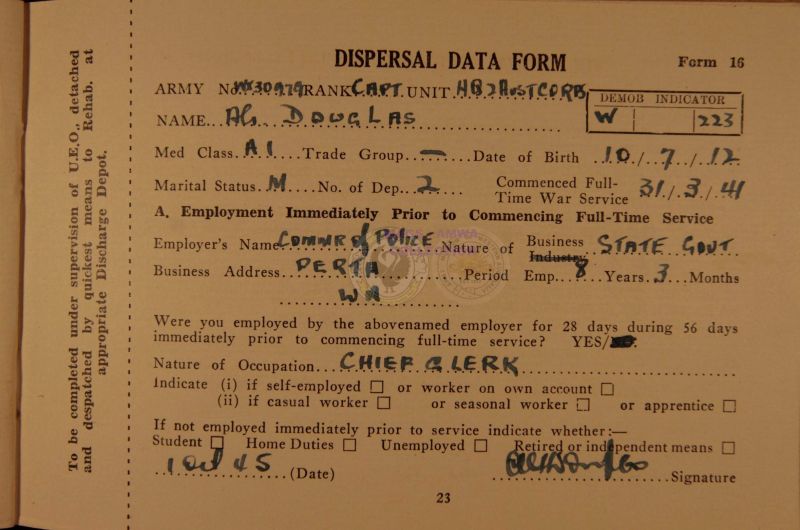 DISPERSAL DATA FORM Form 16
ARMY No WX30979 RANK CAPT. UNIT HQ 2 AUST CORPS
DEMOB INDICATOR
W 223
NAME... AG. DOUGLAS
Med Class. A1 ....Trade Group. — ....Date of Birth 10/7/12
Marital Status. M ....No. of Dep... 2 .... Commenced Full-Time War Service 31/3/41
A. Employment Immediately Prior to Commencing Full-Time Service
Employer's Name COMMR of POLICE Nature of Business STATE GOVT
Industry
Business Address.. PERTH ....Period Emp... 8 ...Years. 3 ...Months
WA
Were you employed by the abovenamed employer for 28 days during 56 days
immediately prior to commencing full-time service? YES/
Nature of Occupation... CHIEF CLERK
Indicate (i) if self-employed □ or worker on own account □
(ii) if casual worker □ or seasonal worker □ or apprentice □
If not employed immediately prior to service indicate whether:—
Student □ Home Duties □ Unemployed □ Retired or independent means □
1 Oct 45 (Date) Signature
23
To be completed under supervision of U.E.O., detached
and despatched by quickest means to Rehab. at
appropriate Discharge Depot.